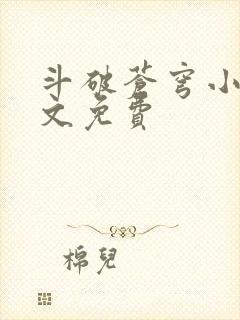 斗破蒼穹小
文免費
棉兒